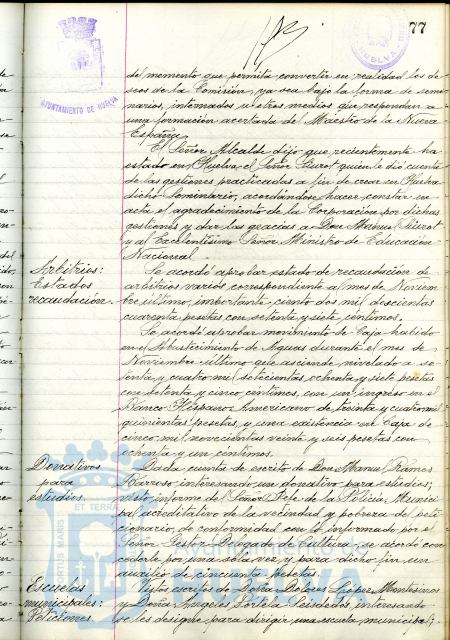 77
AYUNTAMIENTO DE HUELVA
HUELVA
del momento que permita convertir en realidad los de-
seos de la Comisión, ya sea bajo la forma de semi-
narios, internados u otros medios que respondan a
una formación acertada del Maestro de la Nueva
España.
El Señor Alcalde dijo que recientemente ha
estado en Huelva el Señor Siurot quien le dió cuenta
de las gestiones practicadas a fin de crear en Huelva
dicho Seminario, acordándose hacer constar en
acta el agradecimiento de la Corporación por dichas
gestiones y dar las gracias a Don Manuel Siurot
y al Excelentísimo Señor Ministro de Educación
Nacional.
Arbitrios:
Estados
recaudación.
Se acordó aprobar estado de recaudación de
arbitrios varios correspondiente al mes de Noviem-
bre último, importante ciento dos mil doscientas
cuarenta pesetas con setenta y siete céntimos.
Se acordó aprobar movimiento de Caja habido
en el Abastecimiento de Aguas durante el mes de
Noviembre último que asciende nivelado a se-
tenta y cuatro mil setecientas ochenta y siete pesetas
con setenta y cinco céntimos, con un ingreso en el
Banco Hispano Americano de treinta y cuatro mil
quinientas pesetas, y una existencia en Caja de
cinco mil novecientas veinte y seis pesetas con
ochenta y un céntimos.
Donativos
para
estudios.
Dada cuenta de escrito de Don Manuel Ramos
interesando un donativo para estudios;
visto informe del Señor Jefe de la Policía Munici-
pal acreditativo de la vecindad y pobreza del peti-
cionario, de conformidad con lo informado por el
Señor Gestor Delegado de Cultura, se acordó con-
cederle por una sola vez y para dicho fin un
auxilio de cincuenta pesetas.
Escuelas
municipales:
Peticiones.
Vistos escritos de Doña Dolores López Montesinos
y Doña Angeles Sortela Seisdedos, interesando
se les designe para dirigir una escuela municipal,
ET TERRA
PORTUS MARIS
Ayuntamiento de